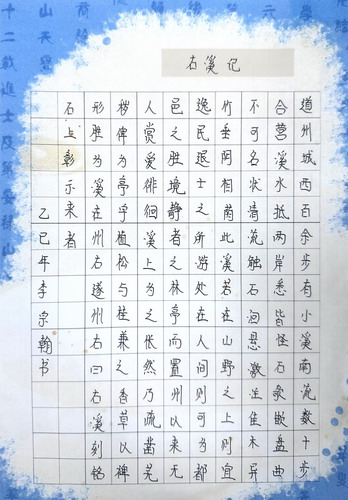 右溪记
道州城西百余步有小溪南流数十步
合营溪水抵两岸悉皆怪石欹嵌盘曲
不可名状清流触石洄悬激注佳木异
竹垂阿相荫此溪若在山野之上则宜
逸民退士之所游处在人间则可为都
邑之胜境静者之林亭而置州以来无
人赏爱徘徊溪上为之怅然乃疏凿芜
秽俾为亭宇植松与桂兼之香草以裨
形胜为溪在州右遂州右曰右溪刻铭
石上彰示来者
乙巳年李宗翰书